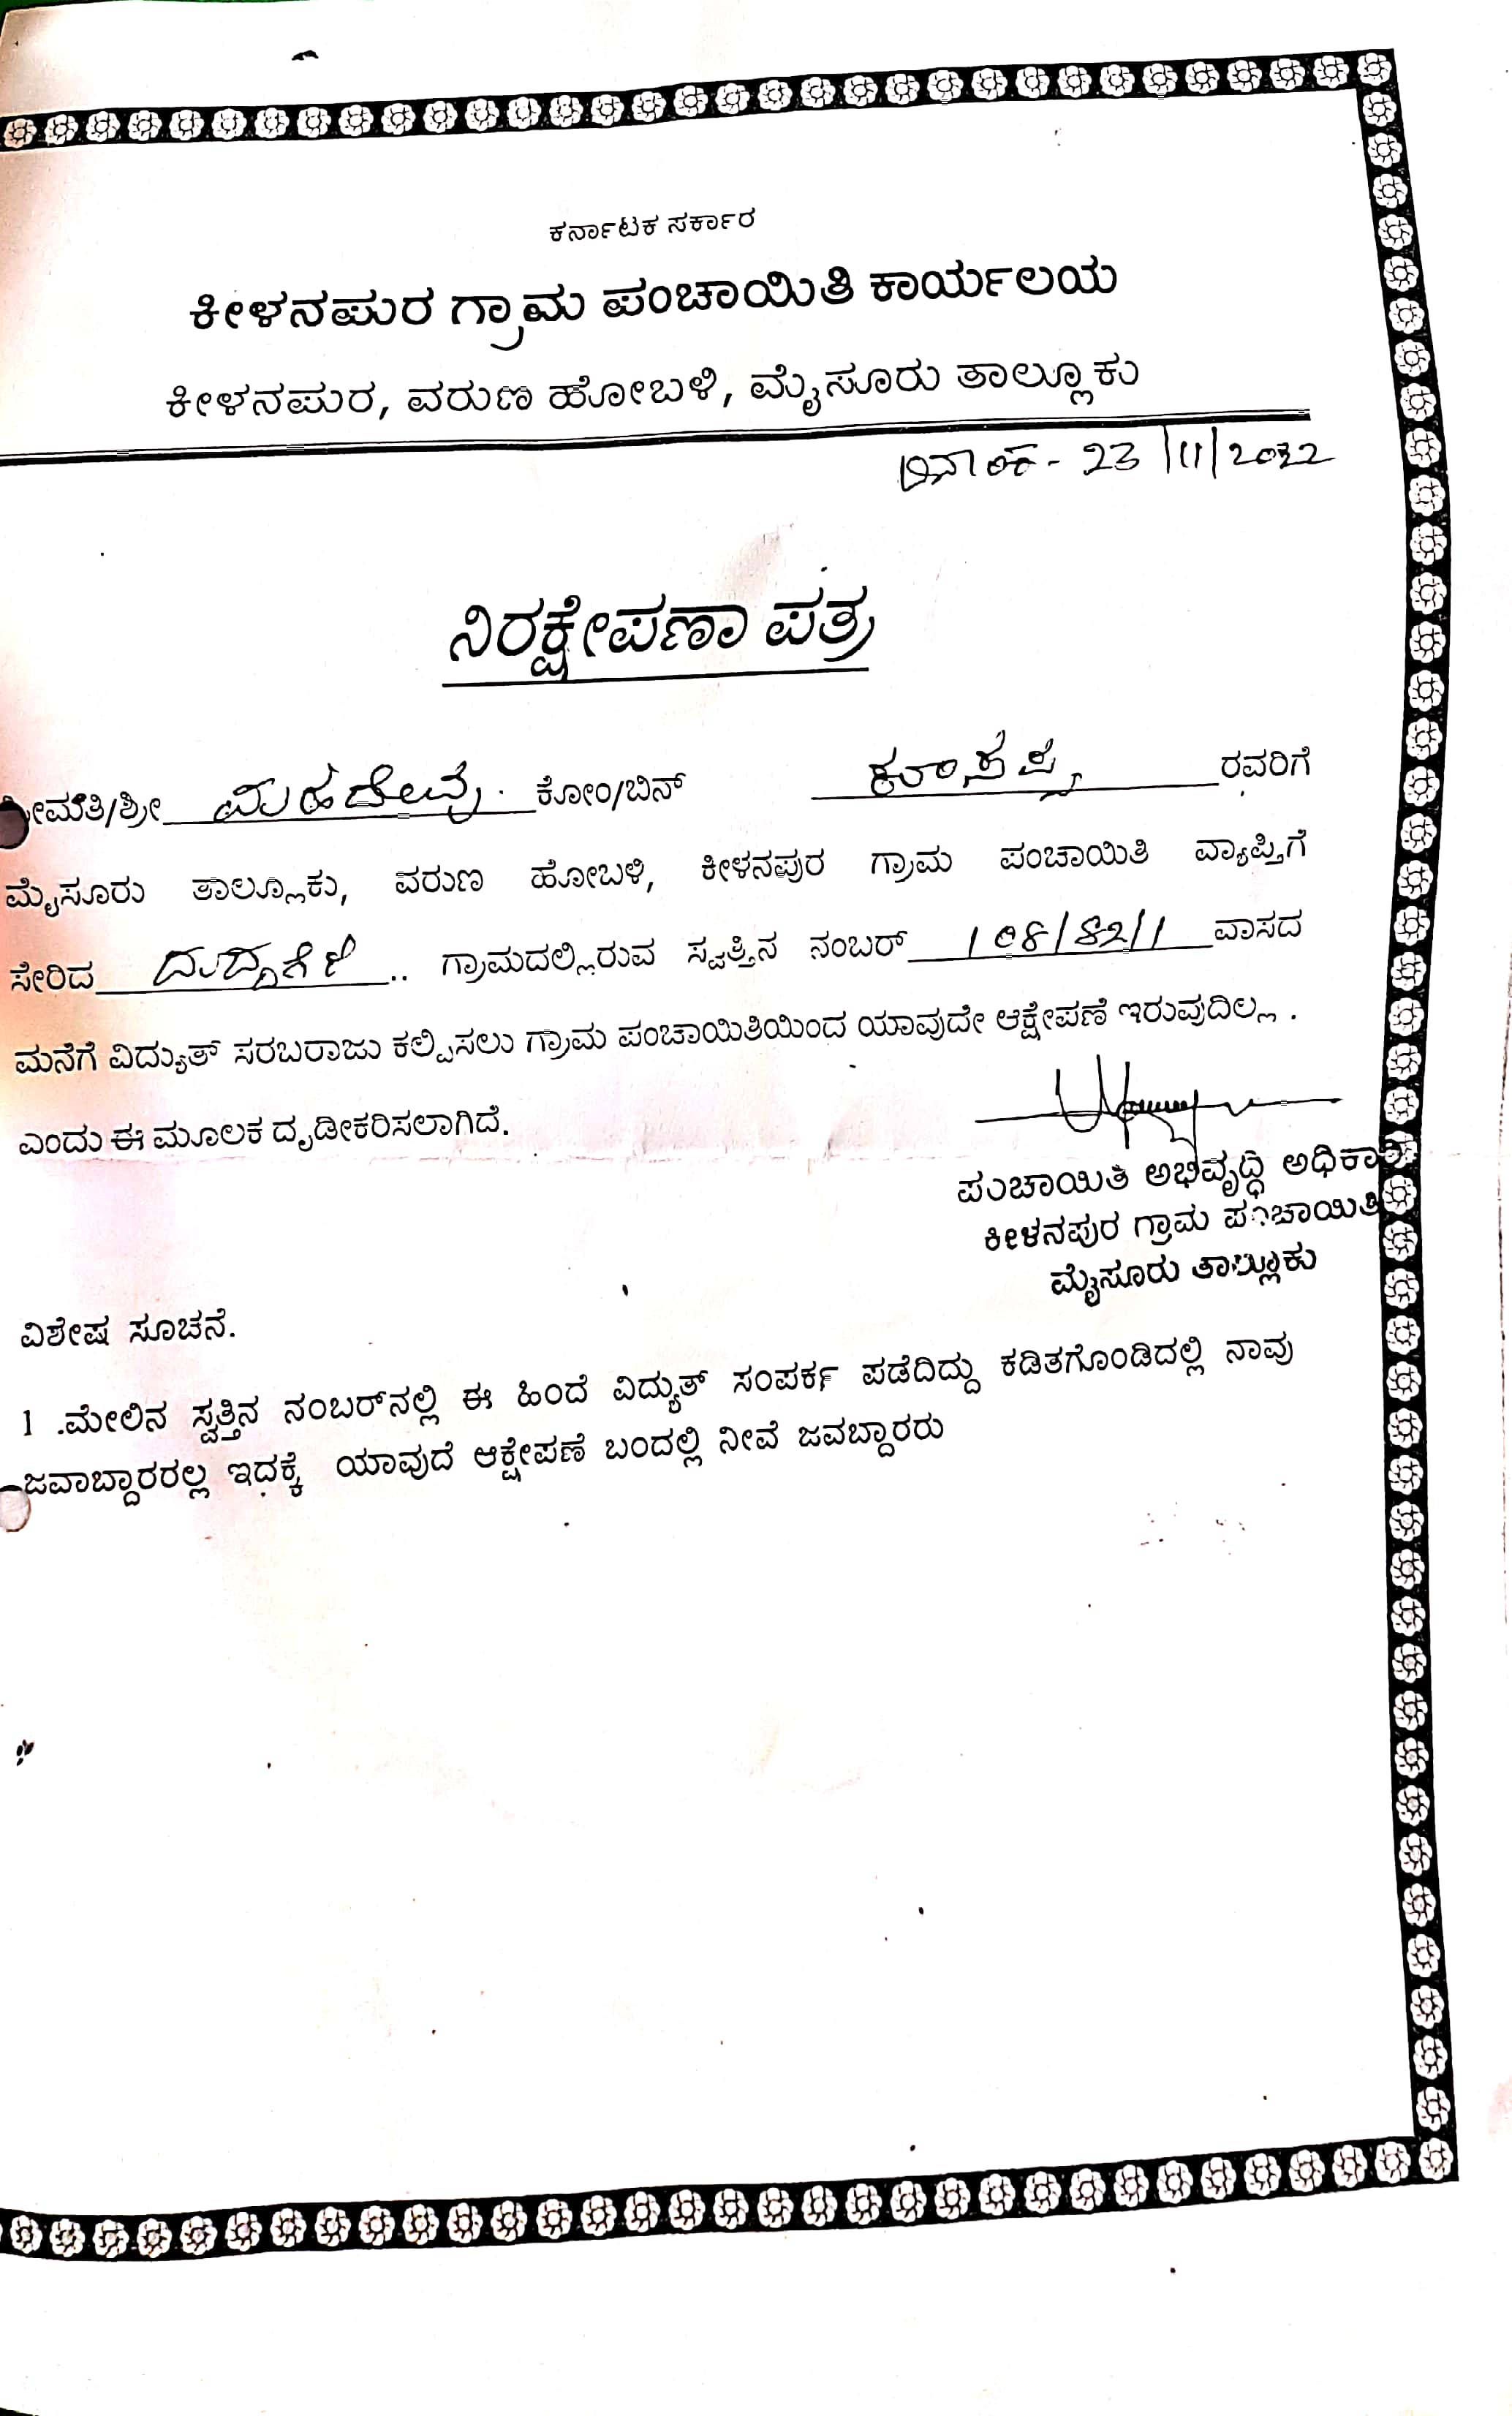 ಕರ್ನಾಟಕ ಸರ್ಕಾರ
ಕೀಳನಪುರ ಗ್ರಾಮ ಪಂಚಾಯಿತಿ ಕಾರ್ಯಲಯ
ಕೀಳನಪುರ, ವರುಣ ಹೋಬಳಿ, ಮೈಸೂರು ತಾಲ್ಲೂಕು
ದಿನಾಂಕ - 23/11/2022
ನಿರಕ್ಷೇಪಣಾ ಪತ್ರ
ಶ್ರೀಮತಿ/ಶ್ರೀ ಮಹದೇವು. ಕೋಂ/ಬಿನ್ ರವರಿಗೆ
ಮೈಸೂರು ತಾಲ್ಲೂಕು, ವರುಣ ಹೋಬಳಿ, ಕೀಳನಪುರ ಗ್ರಾಮ ಪಂಚಾಯಿತಿ ವ್ಯಾಪ್ತಿಗೆ
ಸೇರಿದ ದುದ್ದಗೆರೆ .. ಗ್ರಾಮದಲ್ಲಿರುವ ಸ್ವತ್ತಿನ ನಂಬರ್ 108/82/1 ವಾಸದ
ಮನೆಗೆ ವಿದ್ಯುತ್ ಸರಬರಾಜು ಕಲ್ಪಿಸಲು ಗ್ರಾಮ ಪಂಚಾಯಿತಿಯಿಂದ ಯಾವುದೇ ಆಕ್ಷೇಪಣೆ ಇರುವುದಿಲ್ಲ .
ಎಂದು ಈ ಮೂಲಕ ದೃಡೀಕರಿಸಲಾಗಿದೆ.
ಪಂಚಾಯಿತಿ ಅಭಿವೃದ್ಧಿ ಅಧಿಕಾರಿ
ಕೀಳನಪುರ ಗ್ರಾಮ ಪಂಚಾಯಿತಿ
ಮೈಸೂರು ತಾಲ್ಲೂಕು
ವಿಶೇಷ ಸೂಚನೆ.
1 .ಮೇಲಿನ ಸ್ವತ್ತಿನ ನಂಬರ್‌ನಲ್ಲಿ ಈ ಹಿಂದೆ ವಿದ್ಯುತ್ ಸಂಪರ್ಕ ಪಡೆದಿದ್ದು ಕಡಿತಗೊಂಡಿದಲ್ಲಿ ನಾವು
ಜವಾಬ್ದಾರರಲ್ಲ ಇದಕ್ಕೆ ಯಾವುದೆ ಆಕ್ಷೇಪಣೆ ಬಂದಲ್ಲಿ ನೀವೆ ಜವಬ್ದಾರರು